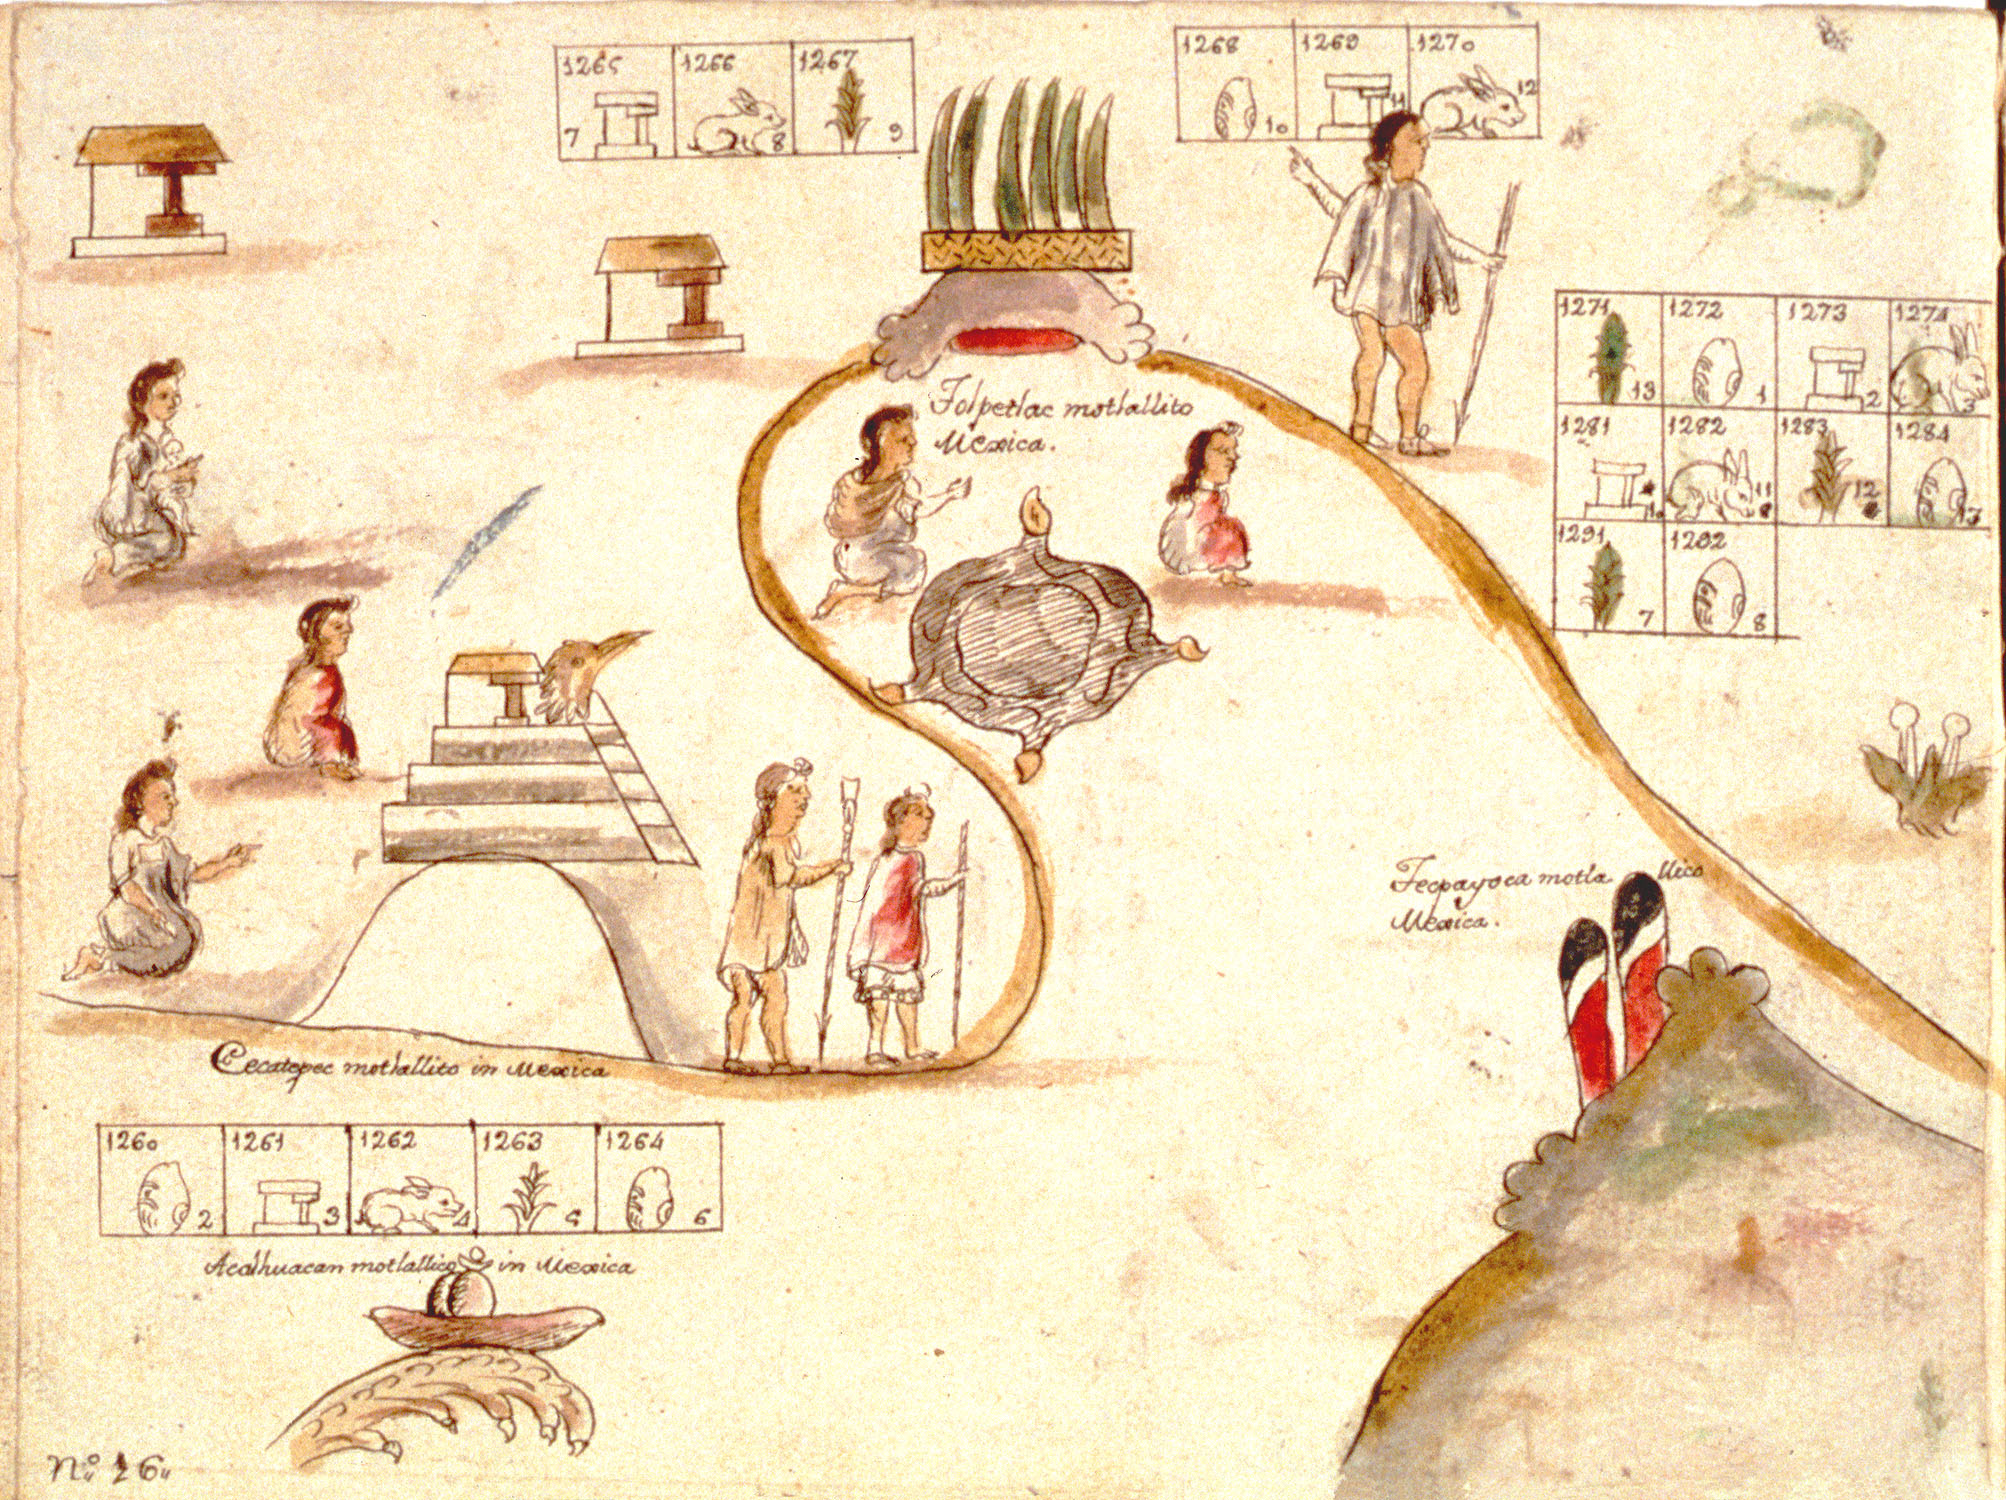 1265 1266 1267
7 8 9
1268 1269 1270
10 11 12
Tolpetlac motlallito
Mexica.
1271 1272 1273 1274
13 1 2 3
1281 1282 1283 1284
10 11 12 13
1291 1292
7 8
Tecpayoca motla llico
Mexica.
Cecatepec motlallito in Mexica
1260 1261 1262 1263 1264
2 3 4 5 6
Acalhuacan motlallico in Mexica
No. 16